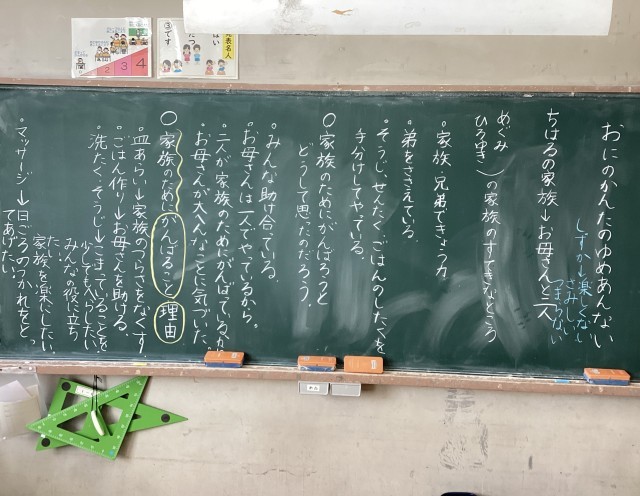 おにのかんたのゆめあんない
しずか→楽しくない
さみしい
つまらない
ちはるの家族→お母さんと二人
めぐみ
ひろゆき)の家族のすてきなところ
・家族、兄弟できょう力
・弟をささえている。
・そうじ、せんたく、ごはんのしたくを
手分けしてやっている。
○家族のためにがんばろうと
どうして思ったのだろう。
・みんな助け合っている。
・お母さんは一人でやっているから。
・二人が家族のためにがんばっているから
・お母さんが大へんなことに気づいた。
○家族のためにがんばること 理由
・皿あらい→家族のつらさをなくす。
・ごはん作り→お母さんを助ける。
・洗たく、そうじ→こまっていることを
少しでもへらしたい
みんなの役に立ち
たい。
家族を楽にしたい。
・マッサージ→日ごろのつかれをとっ
てあげたい。
2 3 4
③
です
はい
発表名人